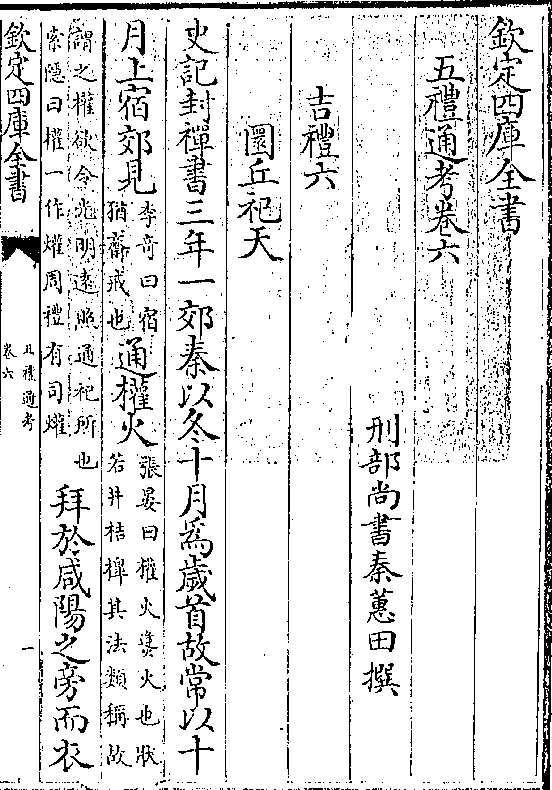 欽定四庫全書
五禮通考卷六
刑部尚書秦蕙田撰
吉禮六
圜丘祀天
史記封禪書三年一郊秦以冬十月為歲首故常以十
月上宿郊見李奇曰宿猶齋戒也通權火張晏曰權火㷭火也狀若井桔槔其法類稱故
謂之權欲令光明遠照通祀所也索隱曰權一作爟周禮有司爟拜於咸陽之旁而衣
欽定四庫全書
五禮通考
卷六
一